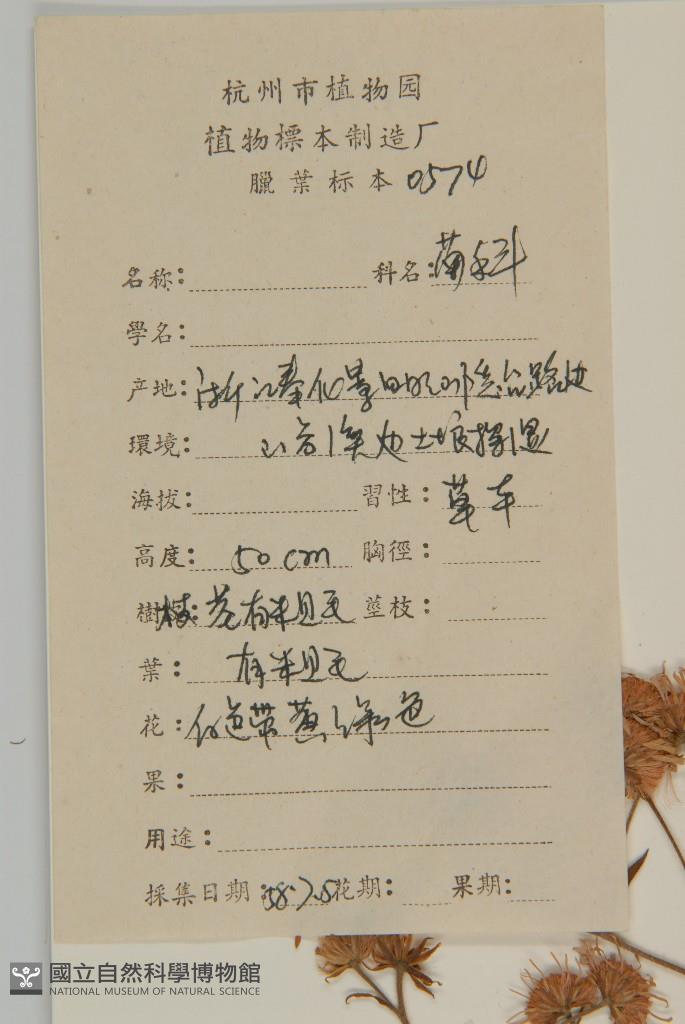 杭州市植物园
植物標本制造厂
臘葉标本 0574
名称: 科名: 菊科
學名:
产地: 浙江奉化
環境: 山谷
海拔: 習性: 草本
高度: 50cm 胸徑:
樹 枝: 茎有粗毛 莖枝:
葉: 有粗毛
花: 白色带黄绿色
果:
用途:
採集日期: 58.7.5 花期: 果期:
國立自然科學博物館
NATIONAL MUSEUM OF NATURAL SCIENCE